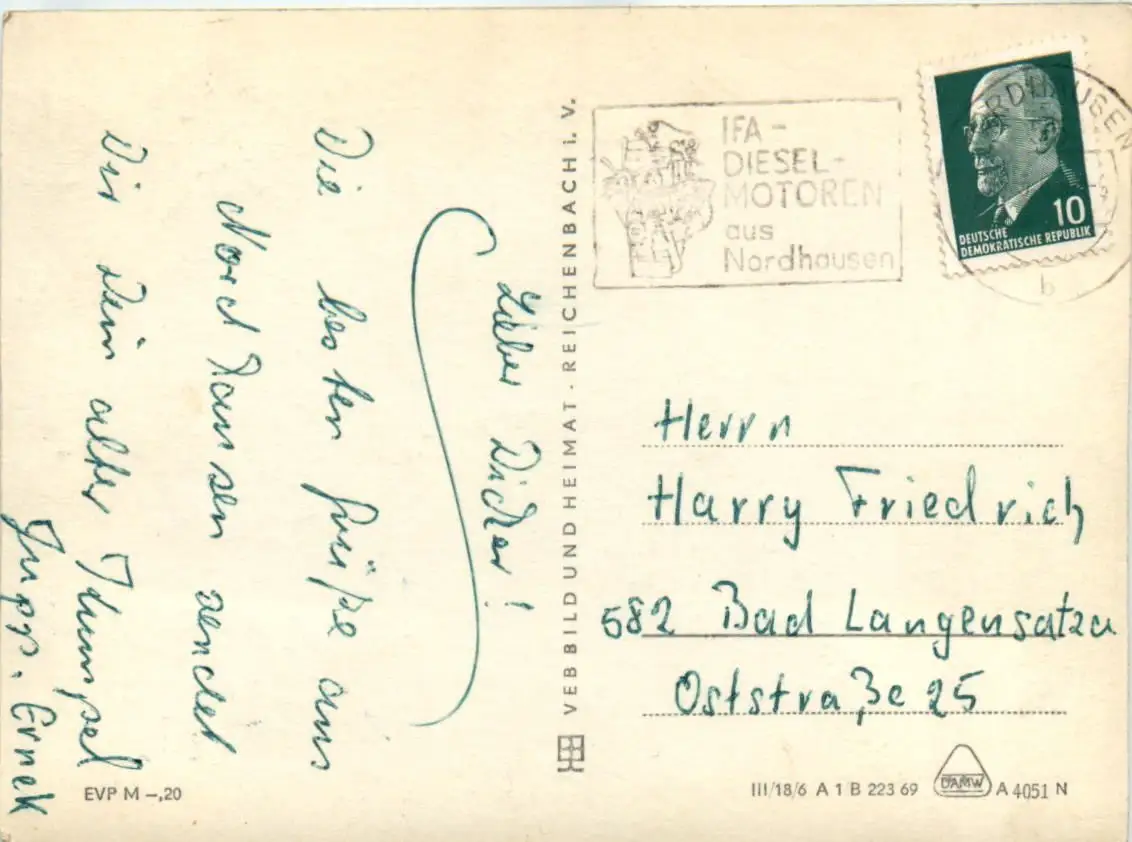 Lieber Dicker!
Die besten Grüße aus
Nordhausen sendet
Dir Dein alter
VEB BILD UND HEIMAT · REICHENBACH i. V.
IFA-
DIESEL-
MOTOREN
aus
Nordhausen
NORDHAUSEN
b
10
DEUTSCHE
DEMOKRATISCHE REPUBLIK
Herrn
Harry Friedrich
582 Bad Langensalza
Oststraße 25
EVP M –,20
III/18/6 A 1 B 223 69
DAMW
A 4051 N